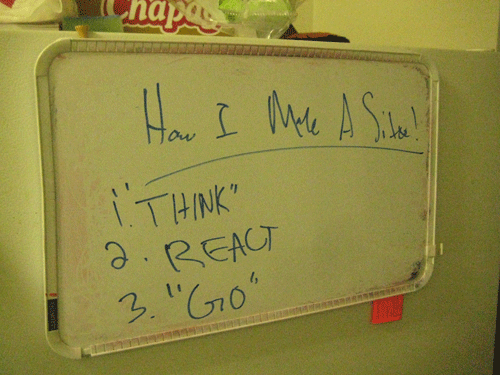 Chapa
How I Make A Sitee!
1. "THINK"
2. REACT
3. "GO"